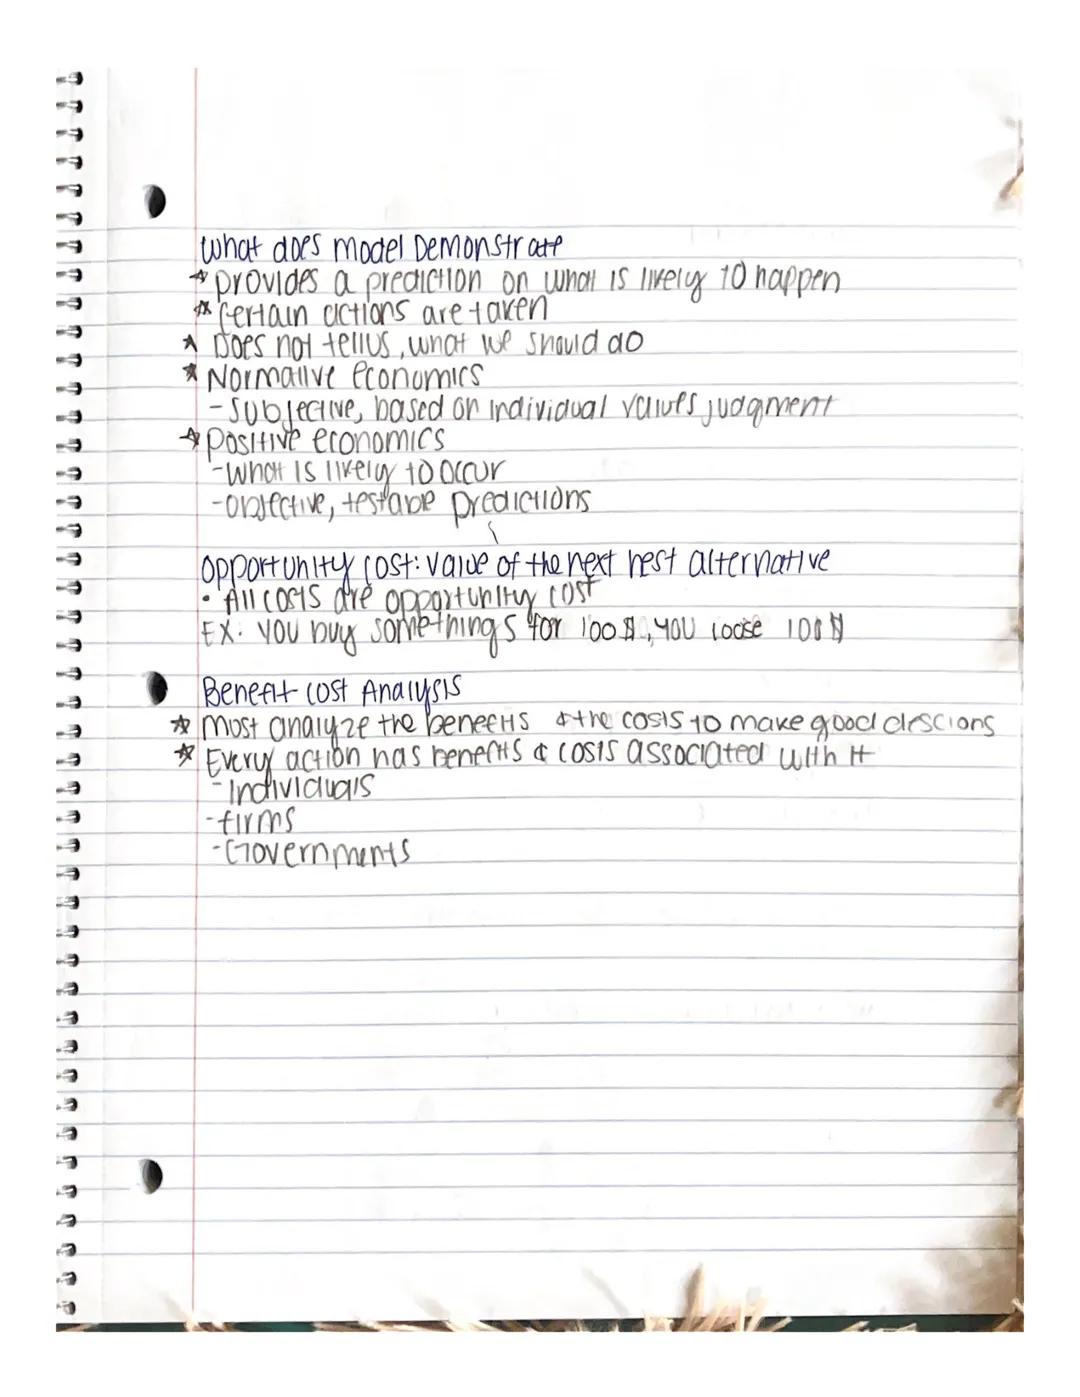 What does model Demonstrate
☆ provides a prediction on what is likely to happen
☆ Certain actions are taken
☆ Does not tell us, what we should do
☆ Normative economics
- Subjective, based on individual values judgment
☆ Positive economics
- What is likely to occur
- objective, testable predictions
Opportunity cost: value of the next best alternative
• All costs are opportunity cost
EX. you buy somethings for 100$, you loose 100$
Benefit cost Analysis
☆ Most analyze the benefits & the costs to make good descions
☆ Every action has benefits & costs associated with it
- Individuals
- firms
- Governments